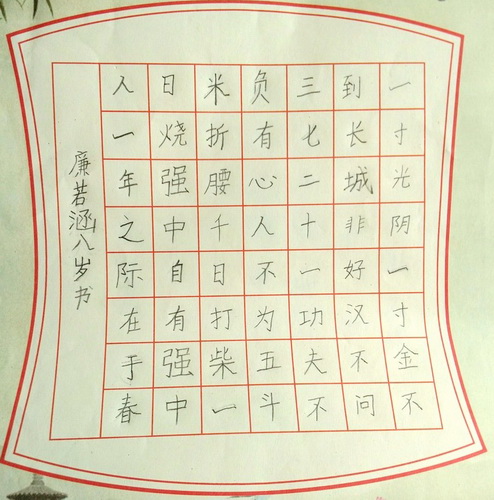 一寸光阴一寸金不
到长城非好汉不问
三七二十一功夫不
负有心人不为五斗
米折腰千日打柴一
日烧强中自有强中
人一年之际在于春
廉若涵八岁书